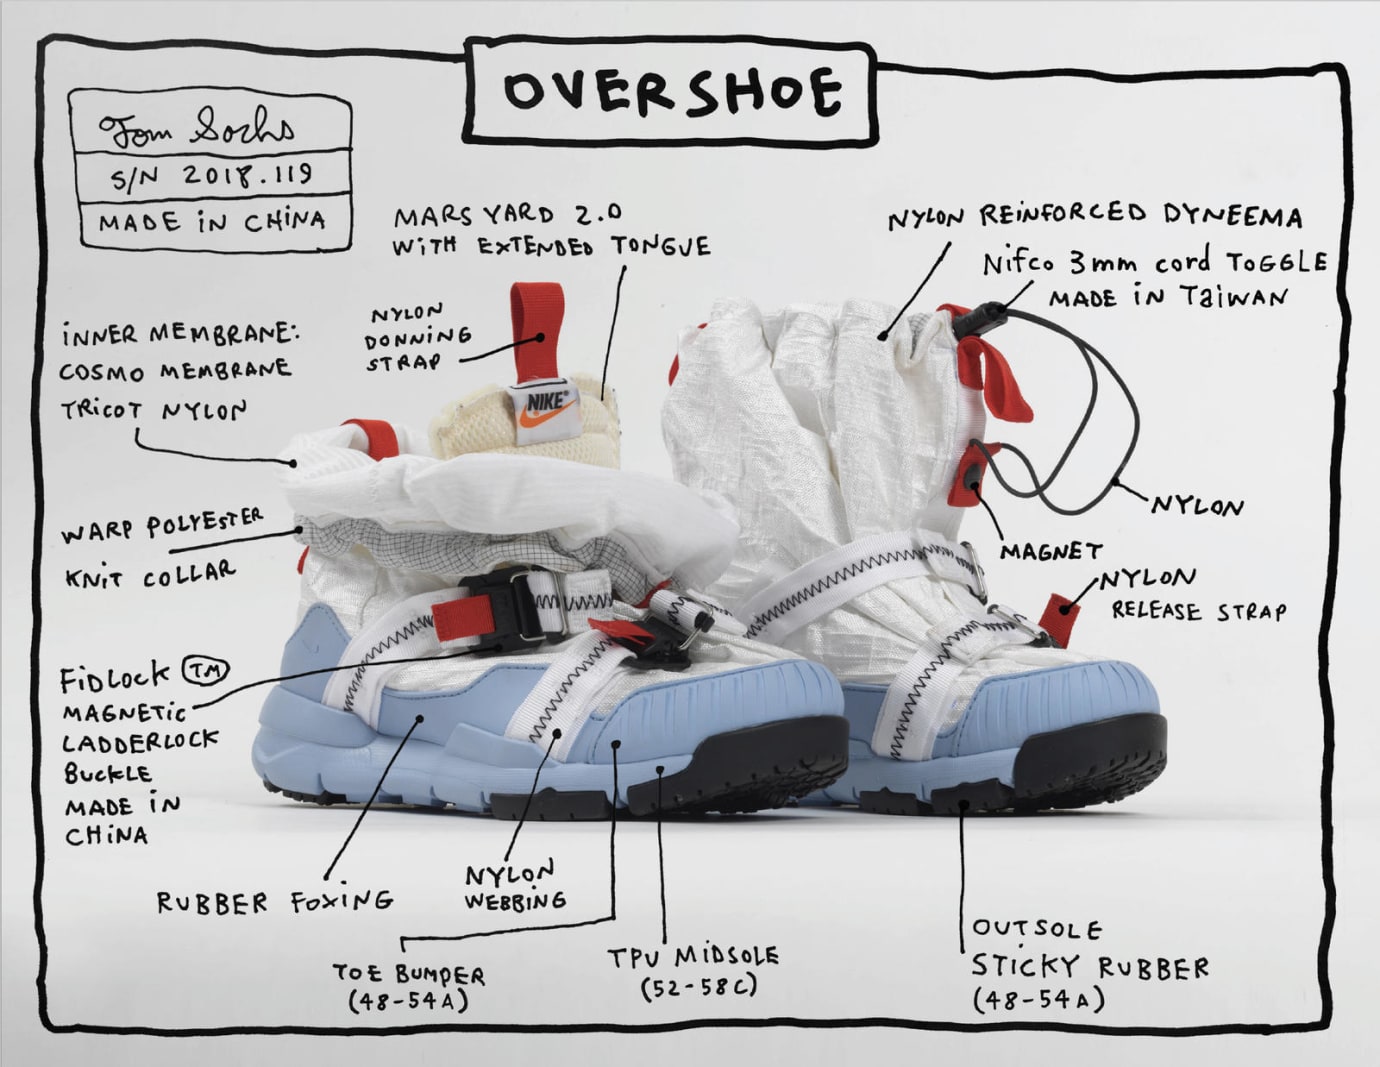 OVERSHOE
Tom Sachs
S/N 2018.119
MADE iN CHiNA
MARS YARD 2.0
WiTH EXTENDED TONGUE
NYLON REiNFORCED DYNEEMA
Nifco 3mm cord TOGGLE
MADE iN TaiWAN
NYLON
DONNiNG
STRAP
iNNER MEMBRANE:
COSMO MEMBRANE
TRiCOT NYLON
NIKE
WARP POLYESTER
KNiT COLLAR
NYLON
MAGNET
NYLON
RELEASE STRAP
FiDLOCK TM
MAGNETiC
LADDERLOCK
BUCKLE
MADE iN
CHiNA
RUBBER FOXiNG
NYLON
WEBBiNG
TOE BUMPER
(48-54A)
TPU MiDSOLE
(52-58C)
OUTSOLE
STiCKY RUBBER
(48-54A)